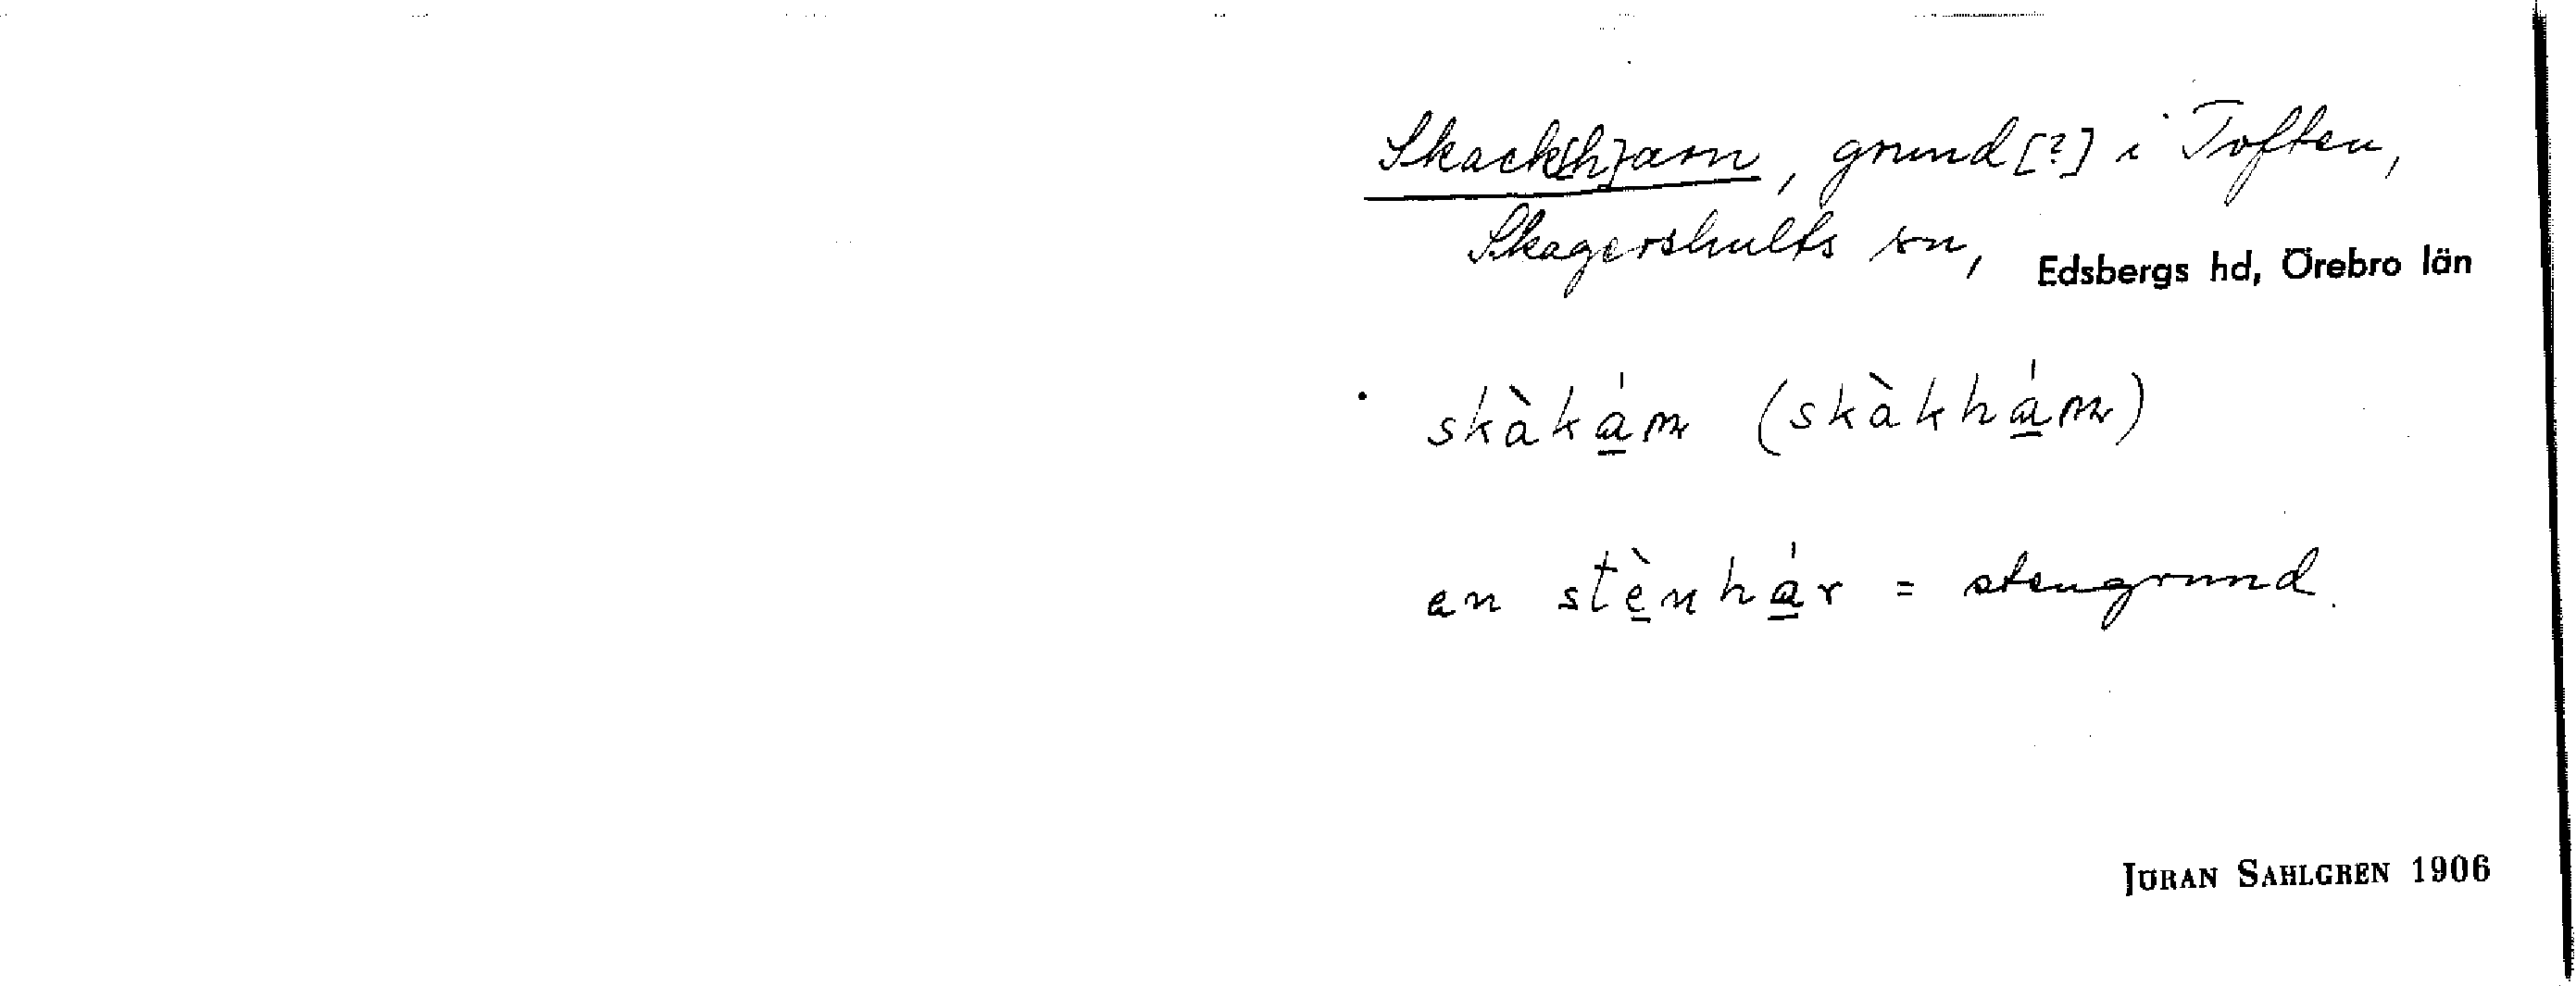 Skack[h]arn, grund [?] i Toften,
Skagershults sn, Edsbergs hd, Örebro län
skàká̱rn (skàkhá̱rn)
en stè̱nhá̱r = stengrund.
JÖRAN SAHLGREN 1906